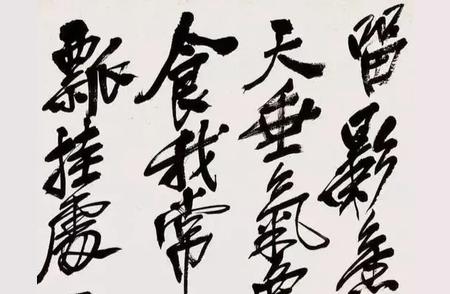 留影
天垂氣
食我常
瓢挂處